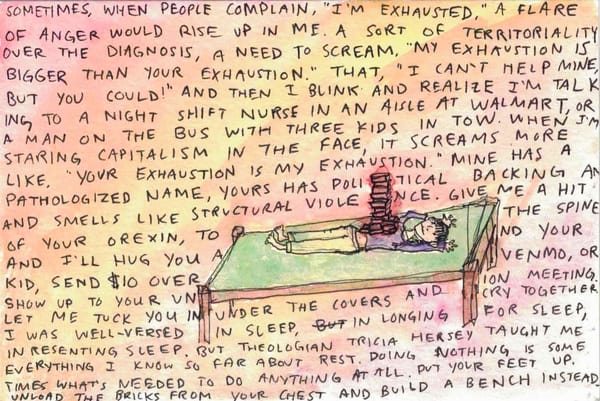 SOMETIMES, WHEN PEOPLE COMPLAIN, "I'M EXHAUSTED," A FLARE
OF ANGER WOULD RISE UP IN ME. A SORT OF TERRITORIALITY
OVER THE DIAGNOSIS, A NEED TO SCREAM, "MY EXHAUSTION IS
BIGGER THAN YOUR EXHAUSTION." THAT, "I CAN'T HELP MINE,
BUT YOU COULD!" AND THEN I BLINK AND REALIZE I'M TALK
ING TO A NIGHT SHIFT NURSE IN AN AISLE AT WALMART, OR
A MAN ON THE BUS WITH THREE KIDS IN TOW. WHEN I'M
STARING CAPITALISM IN THE FACE, IT SCREAMS MORE
LIKE, "YOUR EXHAUSTION IS MY EXHAUSTION." MINE HAS A
PATHOLOGIZED NAME, YOURS HAS POLITICAL BACKING AN
AND SMELLS LIKE STRUCTURAL VIOLENCE. GIVE ME A HIT
OF YOUR OREXIN, TO THE SPINE
AND I'LL HUG YOU A ND YOUR
KID, SEND $10 OVER VENMO, OR
SHOW UP TO YOUR UN ION MEETING.
LET ME TUCK YOU IN UNDER THE COVERS AND CRY TOGETHER
I WAS WELL-VERSED IN SLEEP, BUT IN LONGING FOR SLEEP,
IN RESENTING SLEEP. BUT THEOLOGIAN TRICIA HERSEY TAUGHT ME
EVERYTHING I KNOW SO FAR ABOUT REST. DOING NOTHING IS SOME
TIMES WHAT'S NEEDED TO DO ANYTHING AT ALL. PUT YOUR FEET UP.
UNLOAD THE BRICKS FROM YOUR CHEST AND BUILD A BENCH INSTEAD